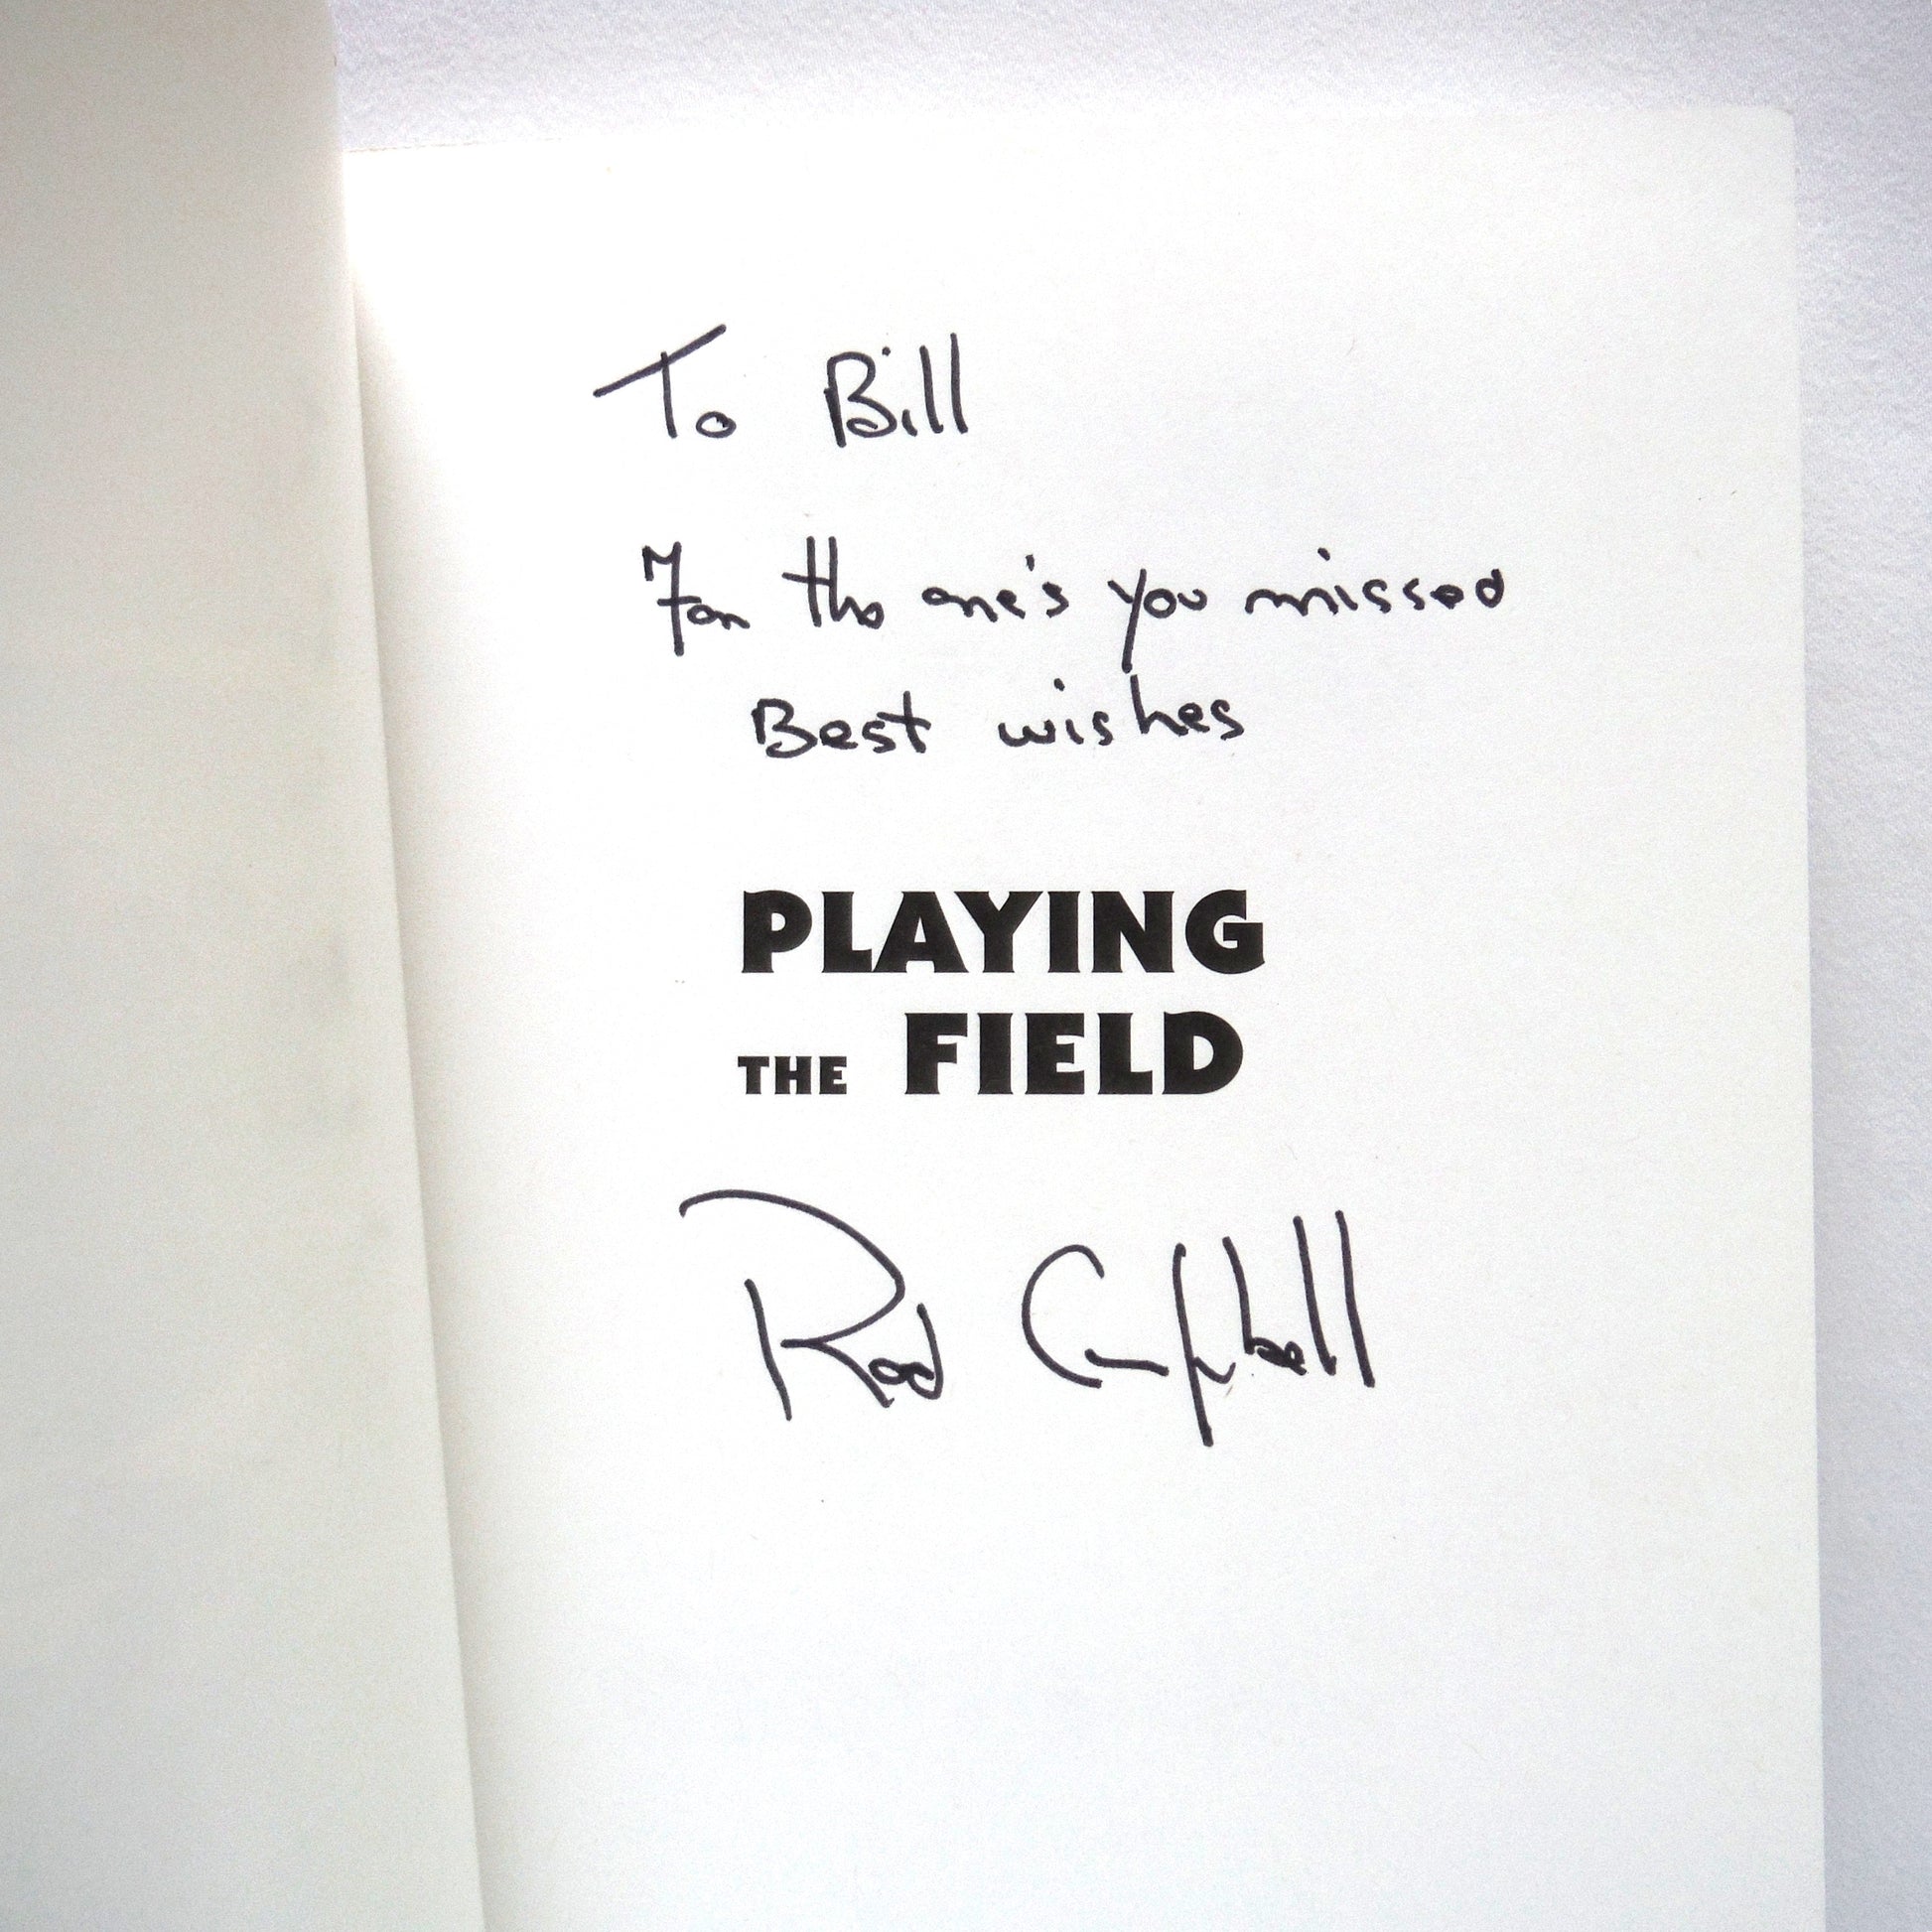 To Bill
For the one's you missed
Best wishes
PLAYING
THE FIELD
Rod Campbell